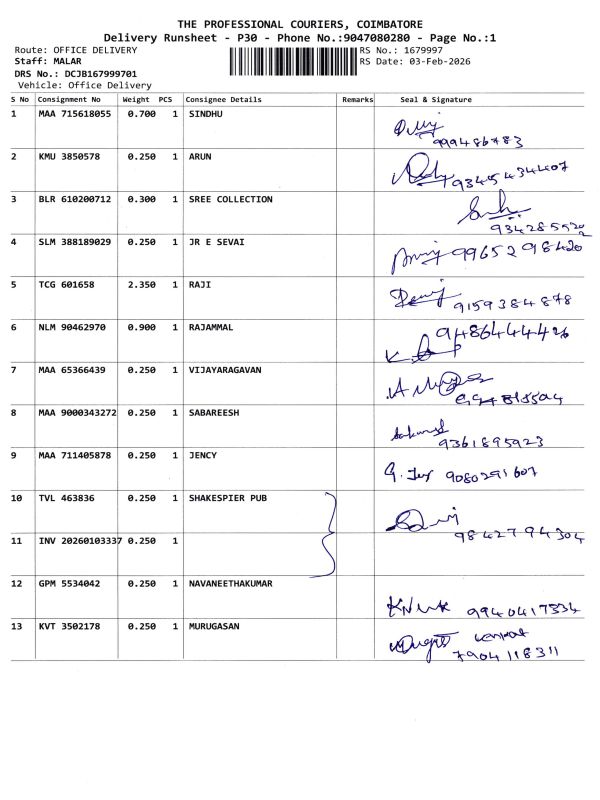 THE PROFESSIONAL COURIERS, COIMBATORE
Delivery Runsheet - P30 - Phone No.:9047080280 - Page No.:1
Route: OFFICE DELIVERY
RS No.: 1679997
Staff: MALAR
RS Date: 03-Feb-2026
DRS No.: DCJB167999701
Vehicle: Office Delivery
S No Consignment No Weight PCS Consignee Details Remarks Seal & Signature
1 MAA 715618055 0.700 1 SINDHU
999486783
2 KMU 3850578 0.250 1 ARUN
9345434407
3 BLR 610200712 0.300 1 SREE COLLECTION
4 SLM 388189029 0.250 1 JR E SEVAI
9965298420
5 TCG 601658 2.350 1 RAJI
9159384878
6 NLM 90462970 0.900 1 RAJAMMAL
7 MAA 65366439 0.250 1 VIJAYARAGAVAN
8 MAA 9000343272 0.250 1 SABAREESH
9361895923
9 MAA 711405878 0.250 1 JENCY
9080291607
10 TVL 463836 0.250 1 SHAKESPIER PUB
9842794304
11 INV 20260103337 0.250 1
12 GPM 5534042 0.250 1 NAVANEETHAKUMAR
9940417334
13 KVT 3502178 0.250 1 MURUGASAN
7904118311